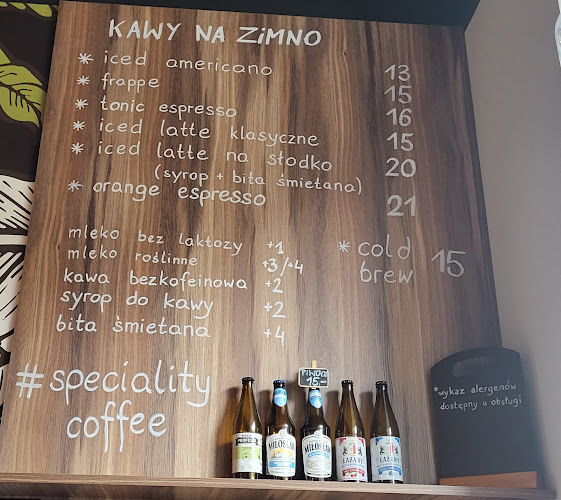 KAWY NA ZiMNO
* iced americano 13
* frappe 15
* tonic espresso 16
* iced latte klasyczne 15
* iced latte na słodko 20
(syrop + bita śmietana)
* orange espresso 21
mleko bez laktozy +1
mleko roślinne +3/+4
kawa bezkofeinowa +2
syrop do kawy +2
bita śmietana +4
* cold brew 15
#speciality
coffee
15,-
MIŁOSŁAW
MIŁOSŁAW
*wykaz alergenów
dostępny u obsługi